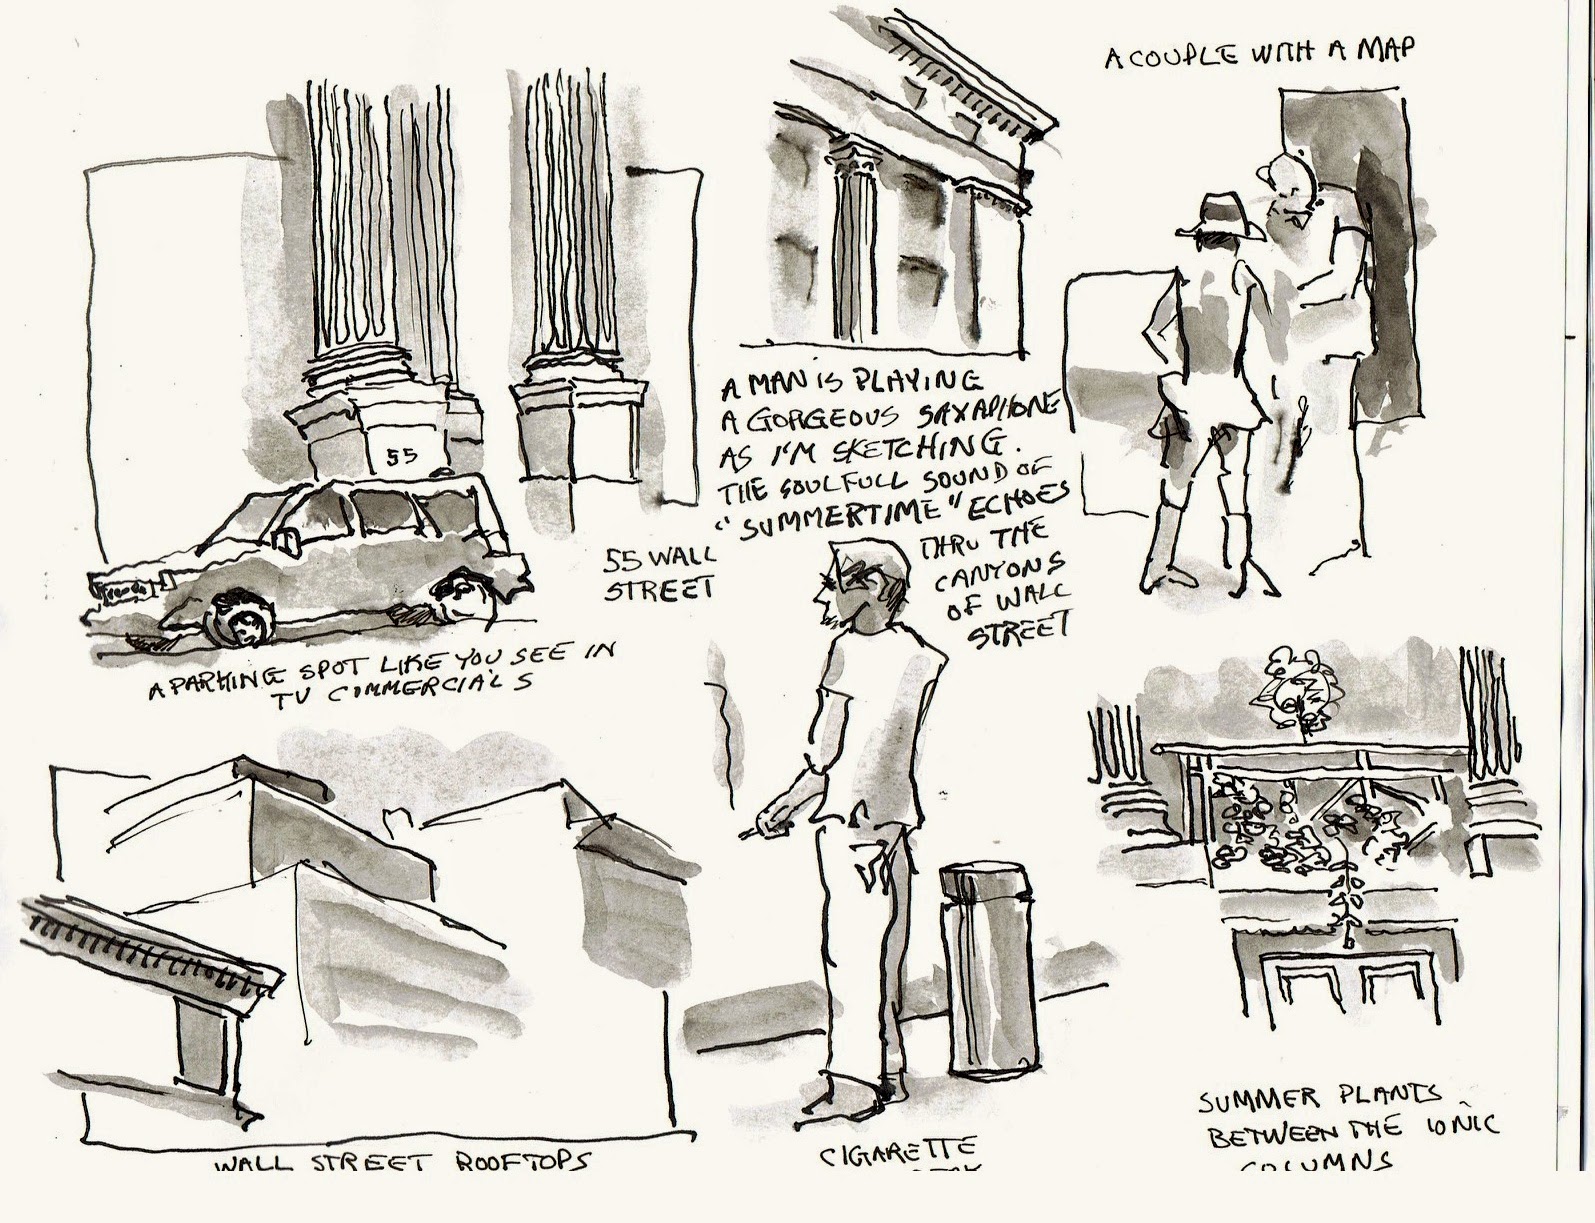 A COUPLE WITH A MAP
55
A MAN iS PLAYING
A GORGEOUS SAXAPHONE
AS I'M SKETCHING.
THE SOULFULL SOUND OF
"SUMMERTIME" ECHOES
THRU THE
CANYONS
OF WALL
STREET
55 WALL
STREET
A PARKING SPOT LIKE YOU SEE IN
TV COMMERCIALS
WALL STREET ROOFTOPS
CIGARETTE
SUMMER PLANTS
BETWEEN THE IONIC
COLUMNS